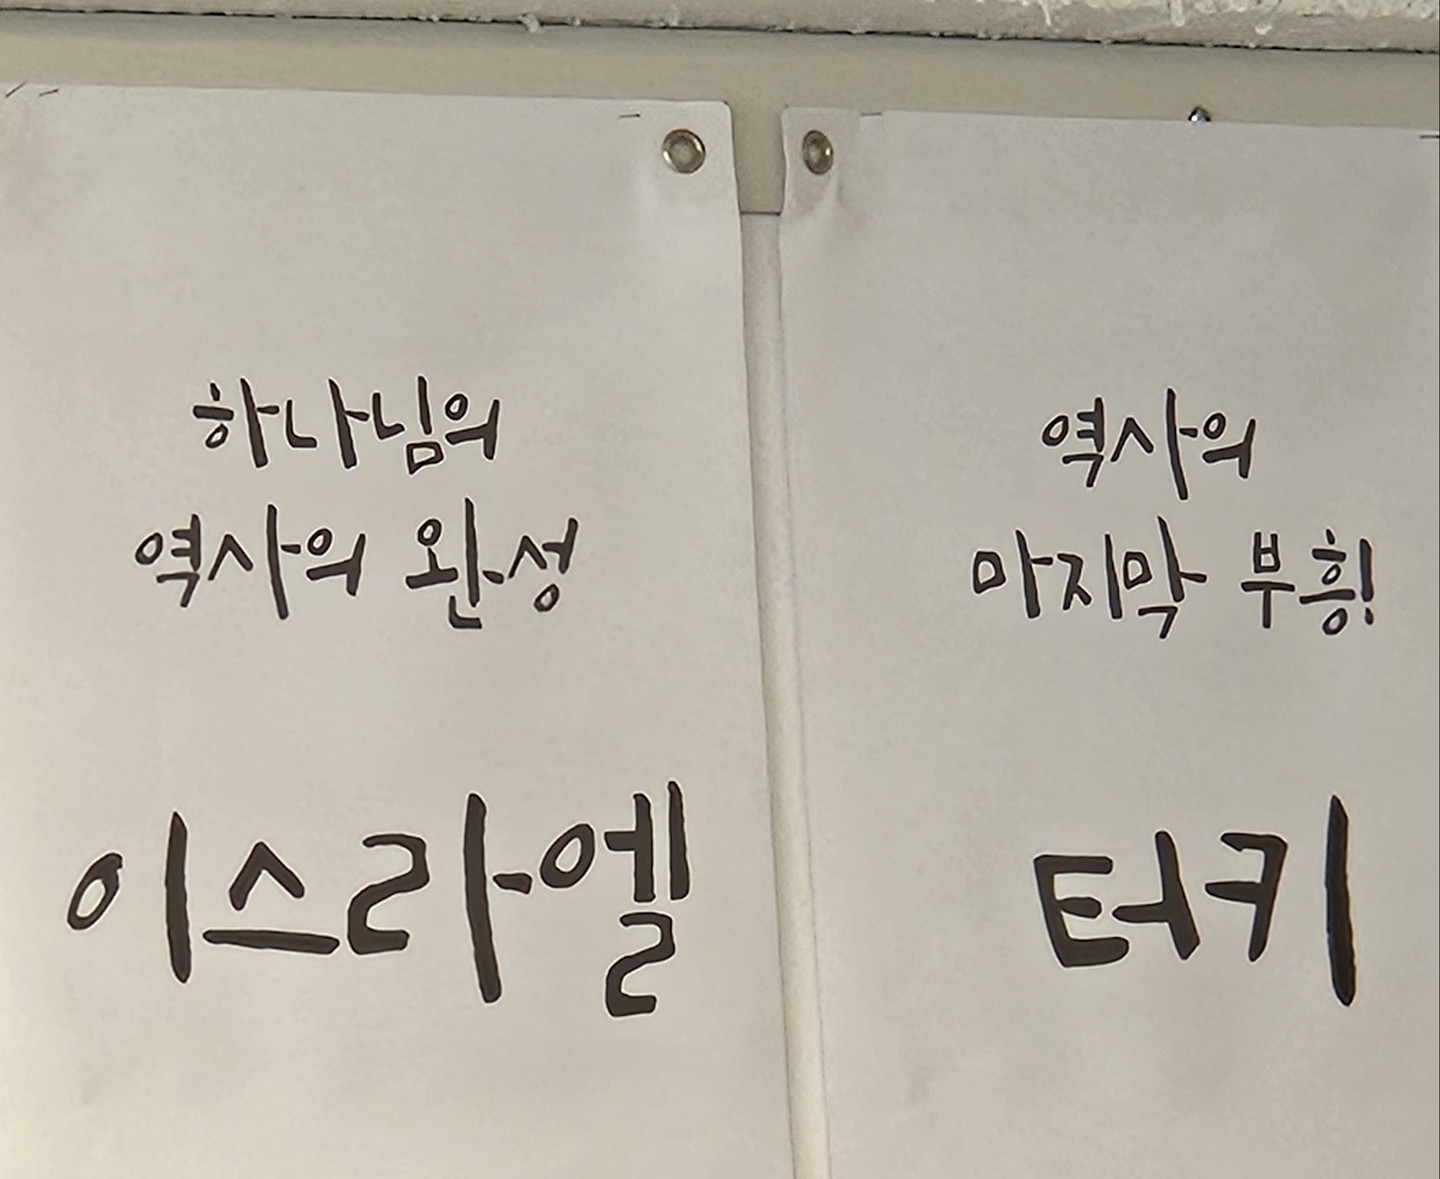 하나님의
역사의 완성
이스라엘
역사의
마지막 부흥!
터키